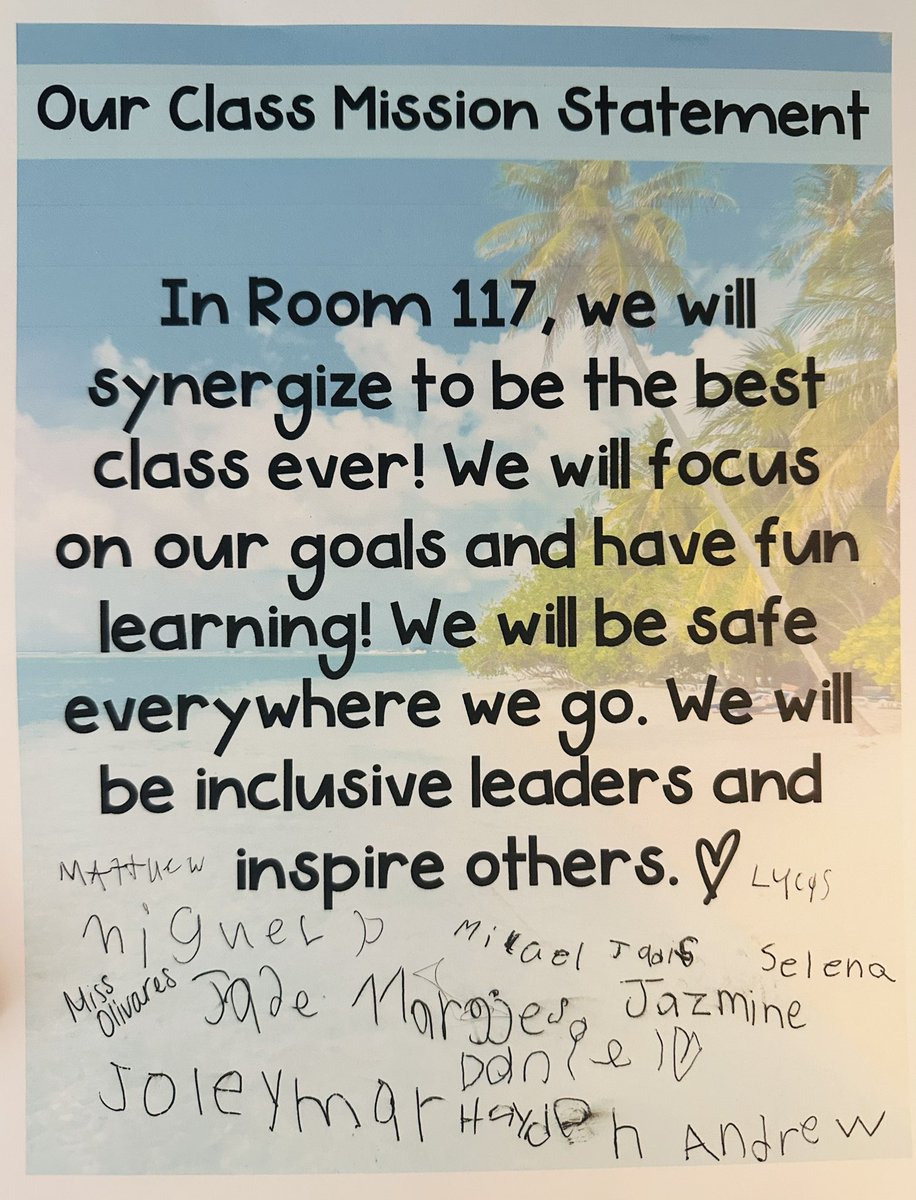 Our Class Mission Statement
In Room 117, we will
synergize to be the best
class ever! We will focus
on our goals and have fun
learning! We will be safe
everywhere we go. We will
be inclusive leaders and
inspire others.
MATTHEW
LYCAS
MiKael
Selena
Miss
Olivares
Jade
Jazmine
Daniel
Joleymar
Hayden
Andrew